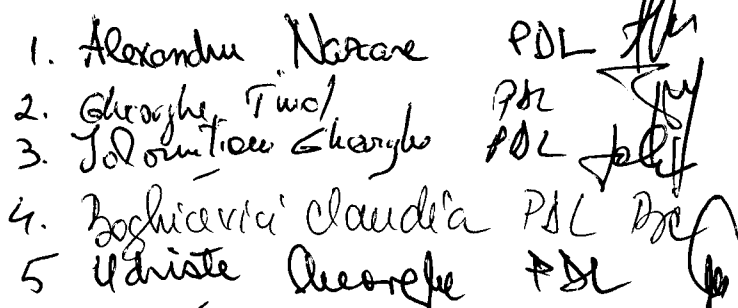 1. Alexandru Nazare PDL
2. Gheorghe Tinel PDL
3. Ialomițianu Gheorghe PDL
4. Boghicevici Claudia PDL
5 Udriște Gheorghe PDL